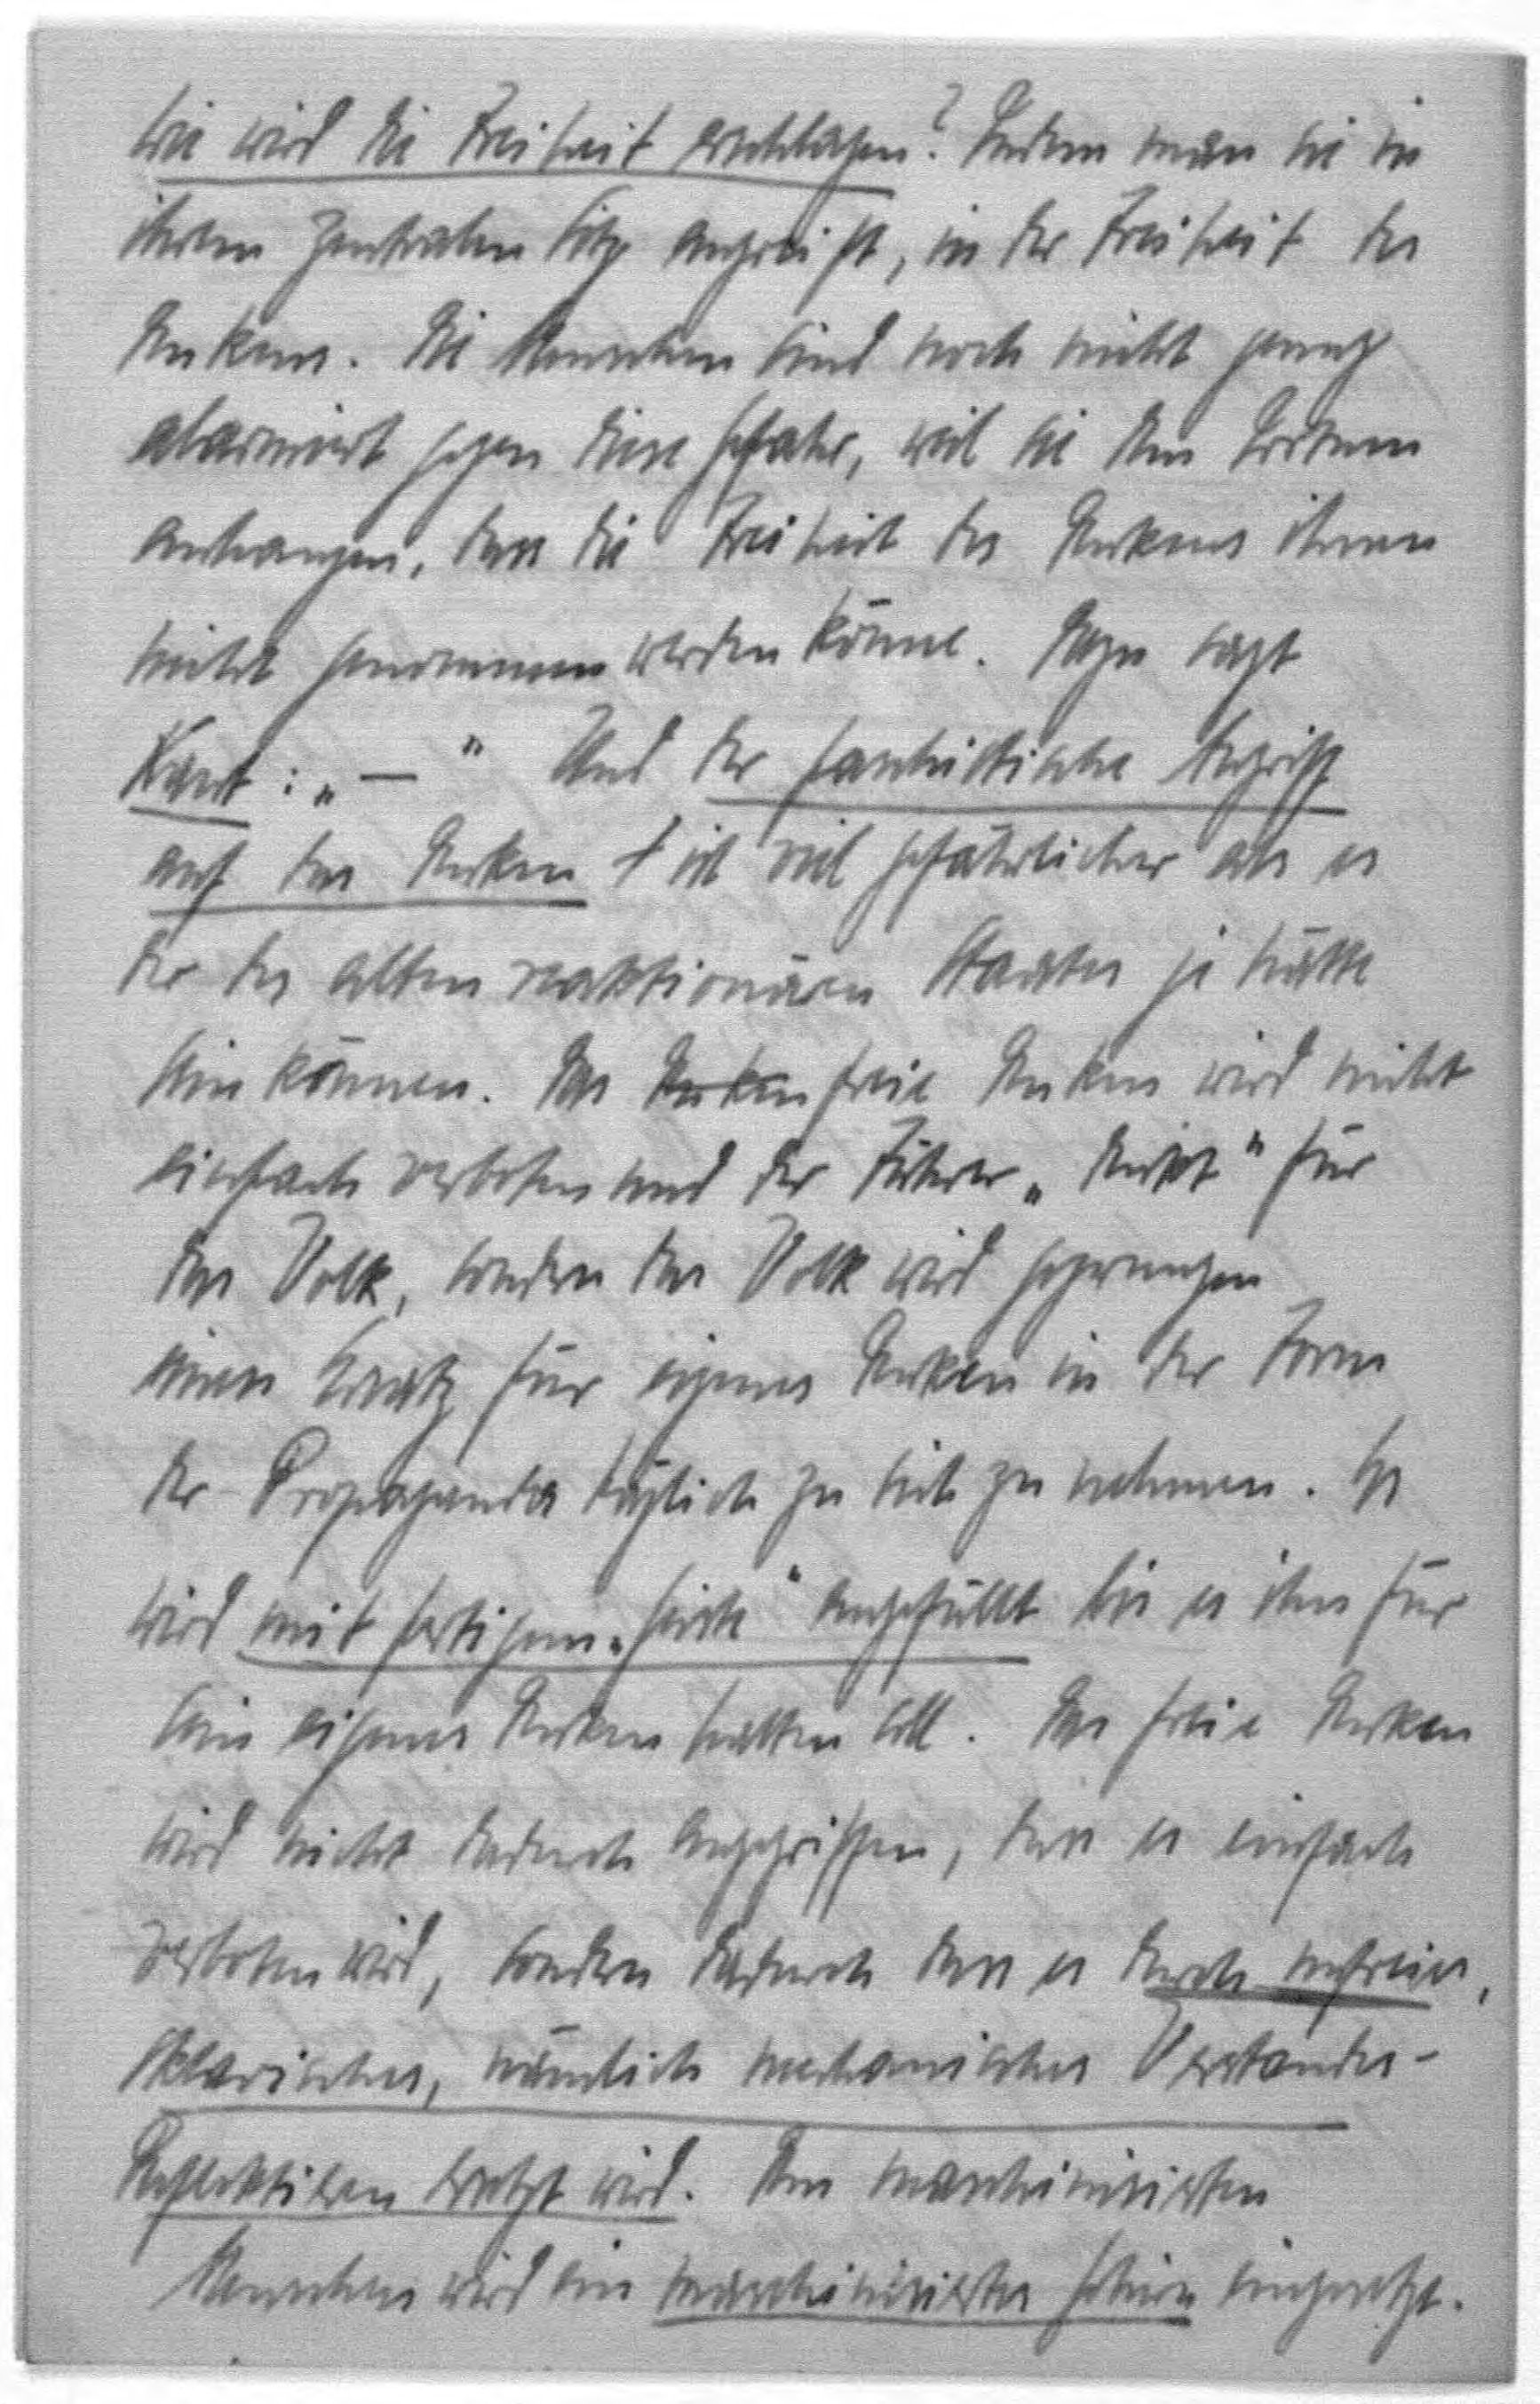 Wie wird die Freiheit erschlagen? Indem man sie in
ihrem zentralen Sitz angreift, in der Freiheit des
Denkens. Die Menschen sind noch nicht genug
alarmiert gegen diese Gefahr, weil sie dem Irrtum
anhangen, dass die Freiheit des Denkens ihnen
nicht genommen werden könne. Dazu sagt
Kant: „ — " Und der faschistische Angriff
auf das Denken ist viel gefährlicher als es
der des alten reaktionären Staates je hätte
sein können. Das Denken freie Denken wird nicht
einfach verboten und der Führer „denkt" für
das Volk, sondern das Volk wird gezwungen
einen Ersatz für eigenes Denken in der Form
der Propaganda täglich zu sich zu nehmen. Es
wird mit fertigem „Geist" angefüllt bis es ihn für
sein eigenes Denken halten soll. Das freie Denken
wird nicht dadurch angegriffen, dass es einfach
verboten wird, sondern dadurch dass es durch unfreies,
sklavisches, nämlich mechanisches Verstandes-
Reflektieren ersetzt wird. Dem maschinisierten
Menschen wird ein maschinisiertes Gehirn eingesetzt.